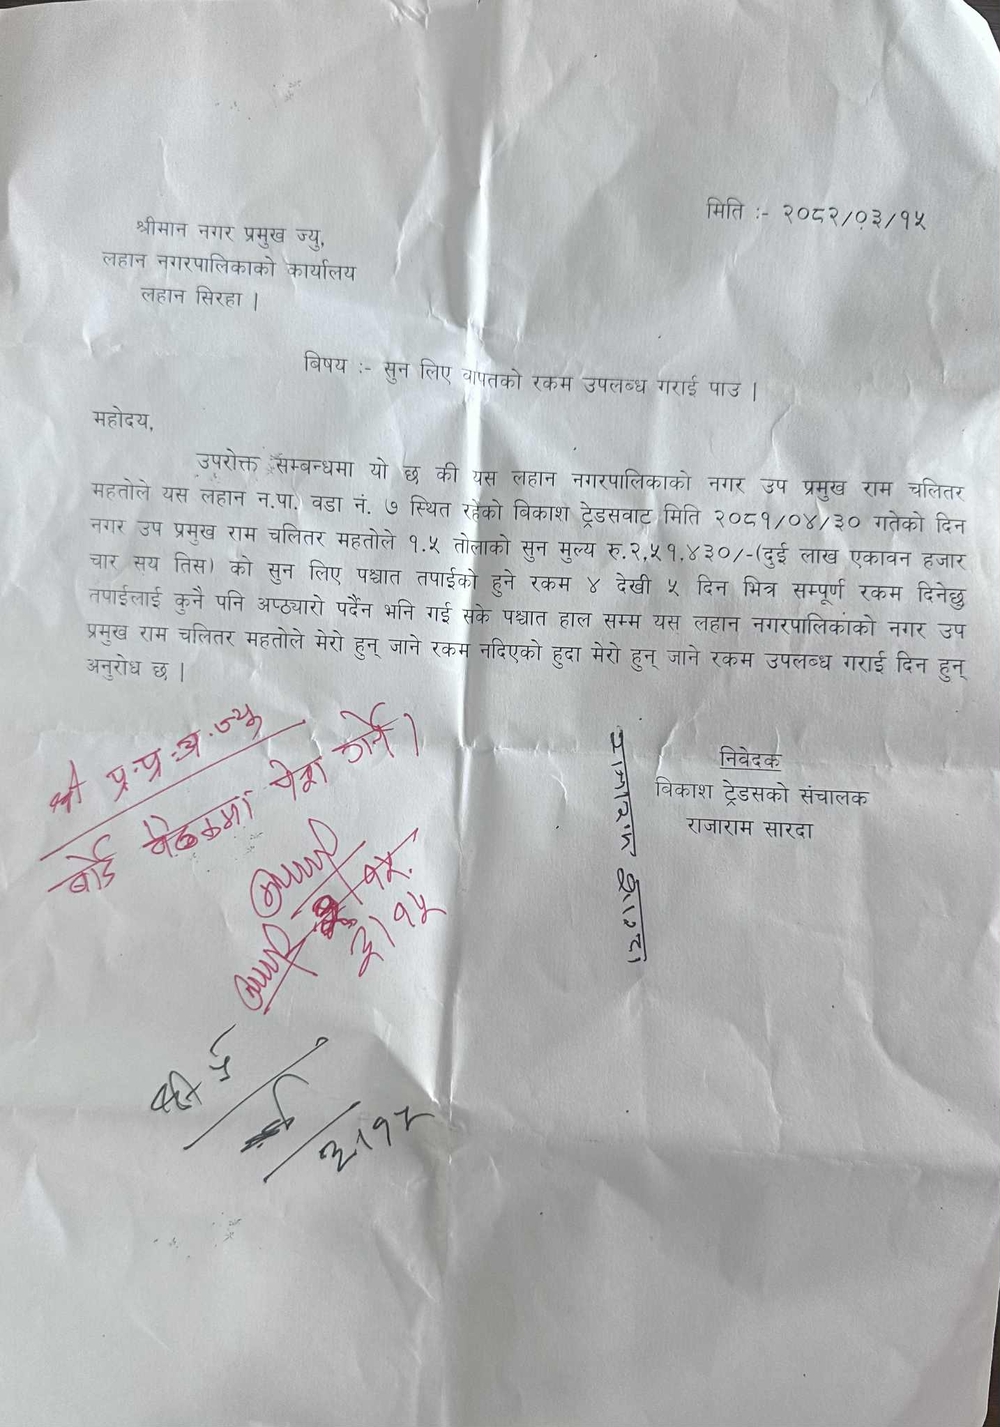 मिति :- २०८२/०३/१५
श्रीमान नगर प्रमुख ज्यु,
लहान नगरपालिकाको कार्यालय
लहान सिरहा |
बिषय :- सुन लिए वापतको रकम उपलब्ध गराई पाउ |
महोदय,
उपरोक्त सम्बन्धमा यो छ की यस लहान नगरपालिकाको नगर उप प्रमुख राम चलितर
महतोले यस लहान न.पा. वडा नं. ७ स्थित रहेको विकाश ट्रेडसवाट मिति २०८१/०४/३० गतेको दिन
नगर उप प्रमुख राम चलितर महतोले १.५ तोलाको सुन मुल्य रु.२,५१,४३०/-(दुई लाख एकावन हजार
चार सय तिस) को सुन लिए पश्चात तपाईको हुने रकम ४ देखी ५ दिन भित्र सम्पूर्ण रकम दिनेछु
तपाईलाई कुनै पनि अप्ठ्यारो पर्दैन भनि गई सके पश्चात हाल सम्म यस लहान नगरपालिकाको नगर उप
प्रमुख राम चलितर महतोले मेरो हुन् जाने रकम नदिएको हुदा मेरो हुन् जाने रकम उपलब्ध गराई दिन हुन्
अनुरोध छ |
निवेदक
विकाश ट्रेडसको संचालक
राजाराम सारदा
श्री प्र.प्र.अ.ज्यू
बोर्ड बैठकमा पेश गर्ने।
३।१५
३।१५